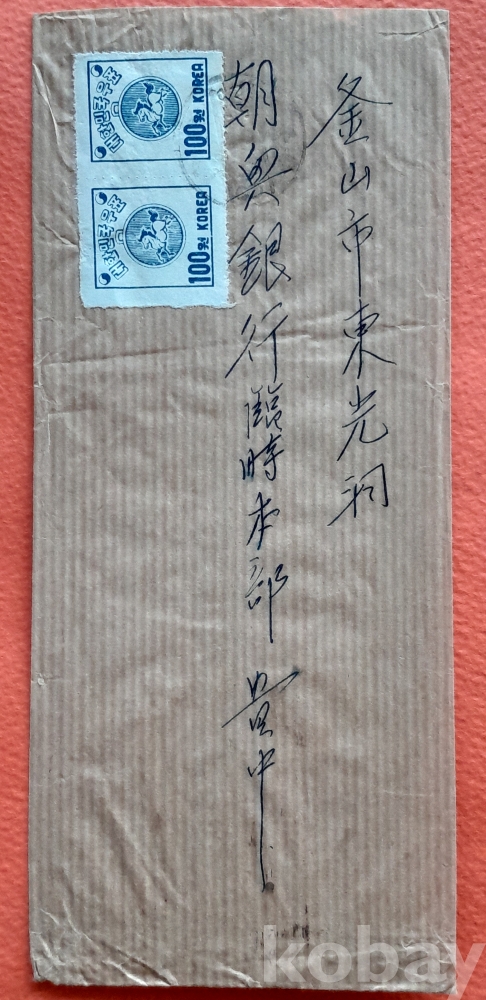 釜山市東光洞
朝興銀行臨時本部 貴中
대한민국우표
100원 KOREA
대한민국우표
100원 KOREA
kobay